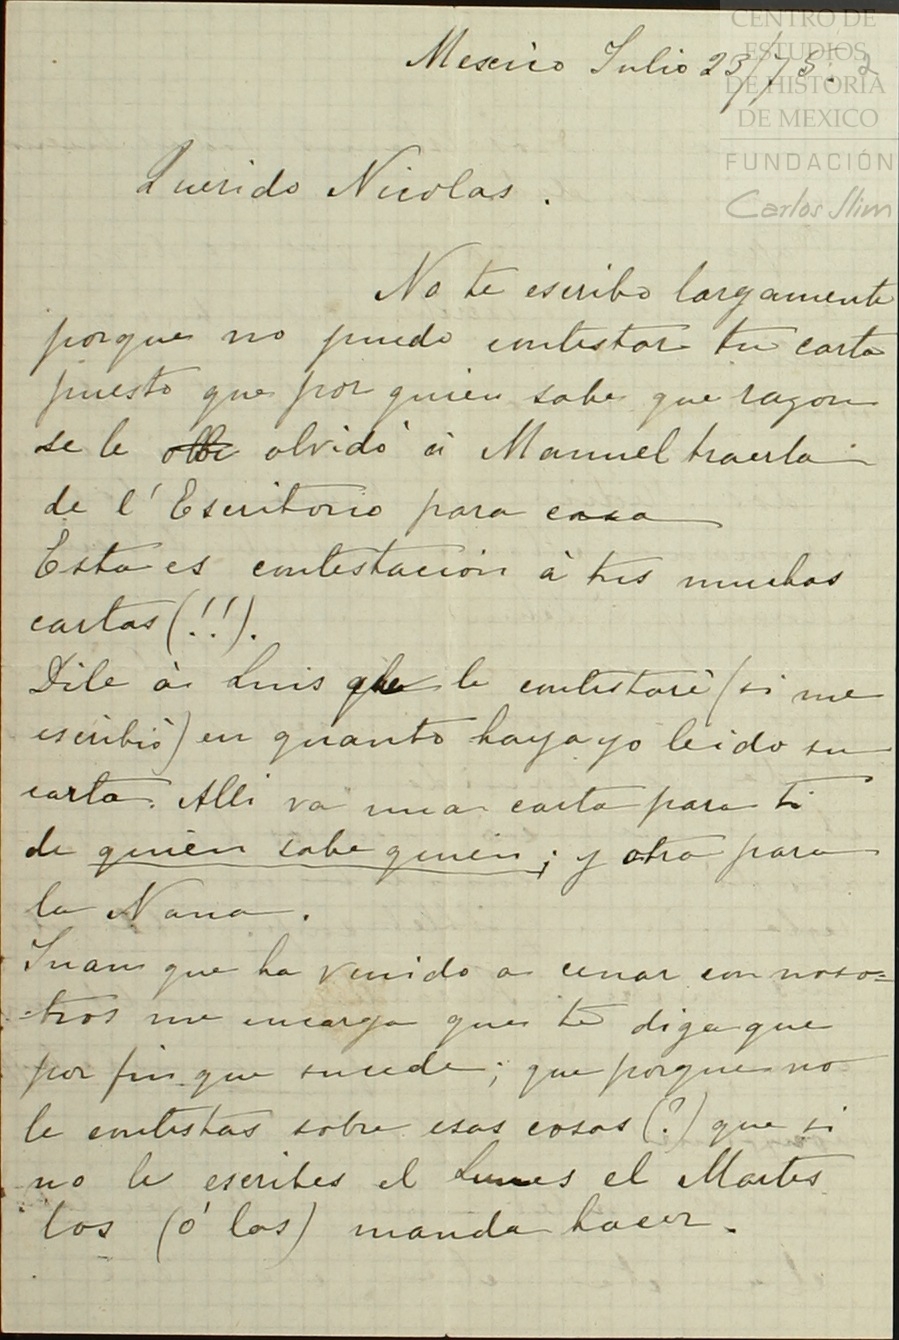 CENTRO DE
ESTUDIOS
DE HISTORIA
DE MEXICO
FUNDACIÓN
Carlos Slim
Mexico Julio 23/75. 2
Querido Nicolas.
No te escribo largamente
porque no puedo contestar tu carta
puesto que por quien sabe que razon
se le olvidó á Manuel traerla
de l'Escritorio para casa
Esta es contestación à tus muchas
cartas (!!).
Dile à Luis que le contestarè (si me
escribiò) en quanto haya yo leido su
carta. Alli va una carta para ti
de quièn sabe quien; y otra para
la Nana.
Juan que ha venido a cenar con noso=
-tros me encarga que te diga que
por fin que sucede; que porque no
le contestas sobre esas cosas (?) que si
no le escribes el Lunes el Martes
los (ó las) manda hacer.